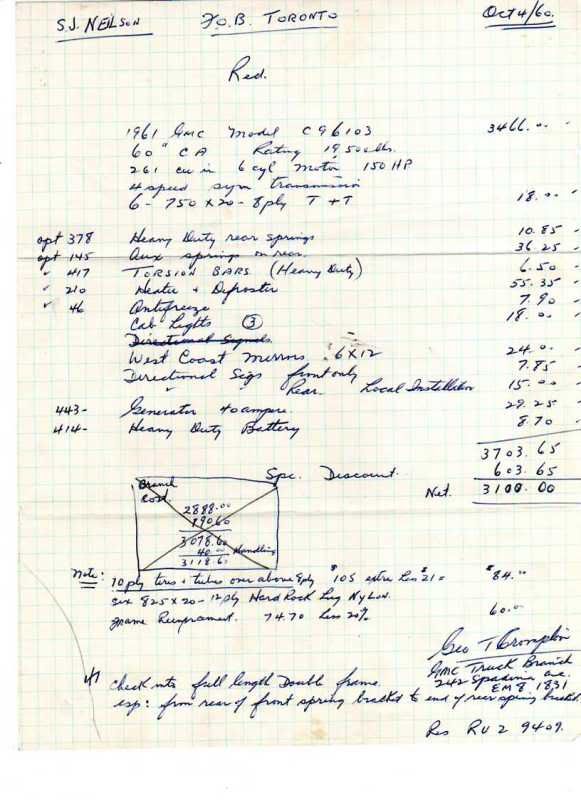 S.J. NEILSON F.O.B. TORONTO Oct 4/60.
Red.
1961 GMC Model C96103 3466.00
60" CA Rating 19,500 lbs.
261 cu in 6 cyl Motor 150 HP
4 speed syn transmission
6 - 750 x 20 - 8 ply T + T 18.00
opt 378 Heavy Duty rear springs 10.85
opt 145 Aux springs on rear. 36.25
" 417 TORSION BARS (Heavy Duty) 6.50
" 210 Heater + Defroster 55.35
" 46 Antifreeze 7.90
Cab Lights (3) 18.00
Directional Signals
West Coast Mirrors 6 x 12 24.00
Directional Sigs front only 7.85
" " Rear. Local Installation 15.00
443- Generator 40 ampere. 29.25
414- Heavy Duty Battery 8.70
3703.65
Spc. Discount 603.65
Net. 3100.00
Branch
Cost.
2888.00
190.60
3078.60
40.00 Handling
3118.60
Note: 10 ply tires + tubes over above 8 ply $105 extra Less $21 = $84.00
six 825 x 20 - 12 ply Hard Rock Lug Nylon.
frame Reinforcement. 74.70 less 20% 60.00
Geo T Crompton
GMC Truck Branch
242 Spadina Ave.
EM 8 1831
check into full length Double frame.
esp: from rear of front spring bracket to end of rear spring bracket.
Res RU 2 9409.